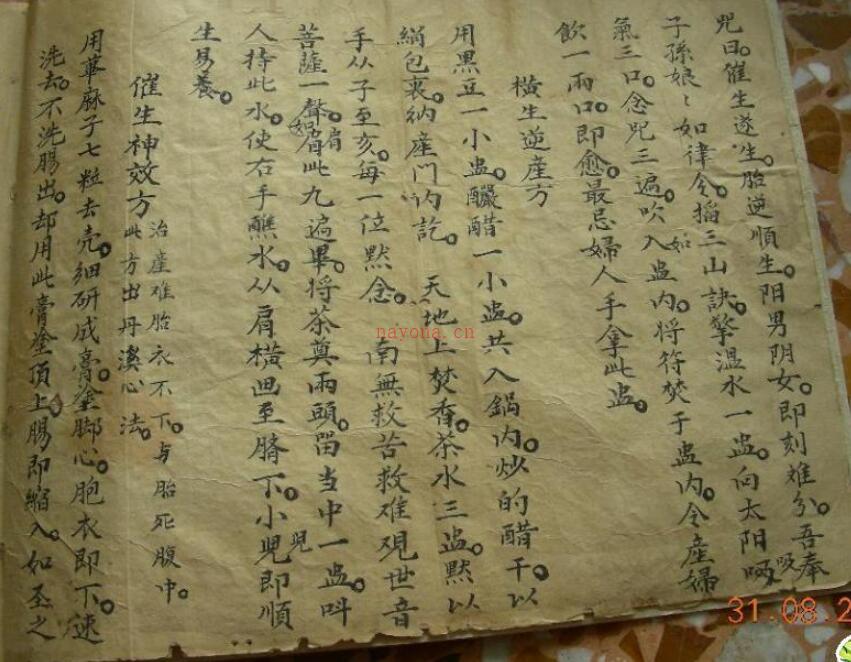 咒曰。催生遂生。胎逆順生。阳男阴女。即刻难分。吾奉
子孫娘〻如律令。搯三山訣。擎溫水一盅。向太阳吸
氣三口。念咒三遍。吹入盅内。将符焚于盅内。令産婦
飲一兩口。即愈。最忌婦人手拿此盅。
橫生逆産方
用黑豆一小盅。釅醋一小盅。共入鍋内。炒的醋干。以
絹包裹。纳産門内訖。天地上焚香。茶水三盅。默以
手从子至亥。每一位默念。南無救苦救难观世音
菩薩一聲。如肩此九遍畢。将茶奠兩頭。畱当中一盅。呌
人持此水。使右手醮水。从肩橫画至臍下。小兒即順
生易養。
催生神效方 治產难胎衣不下。与胎死腹中。
此方出丹溪心法。
用萆麻子七粒去壳。细研成膏。塗脚心。胞衣即下。速
洗去。不洗腸出。却用此膏塗頂上。腸即縮入。如圣之
nayona.cn
31.08.2